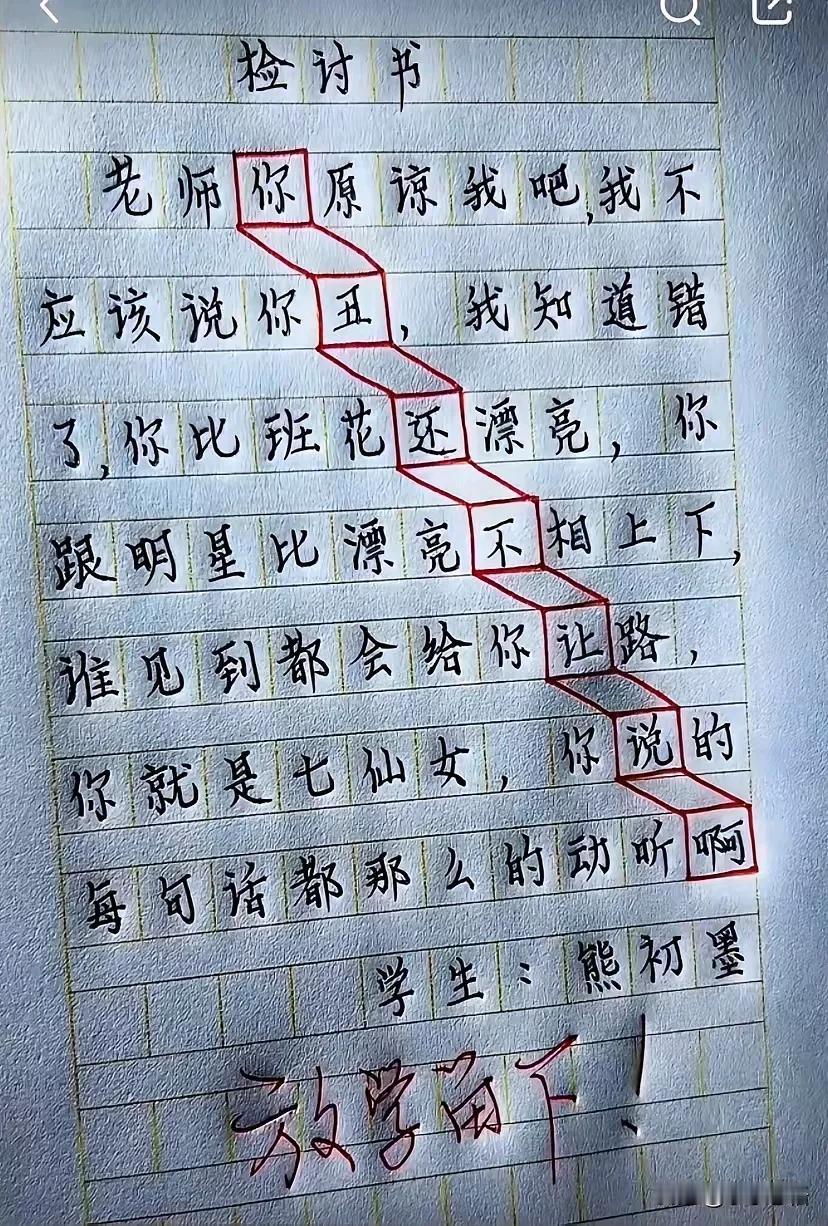 检讨书
老师你原谅我吧,我不
应该说你丑，我知道错
了,你比班花还漂亮，你
跟明星比漂亮不相上下,
谁见到都会给你让路，
你就是七仙女，你说的
每句话都那么的动听啊
学生：熊初墨
放学留下!